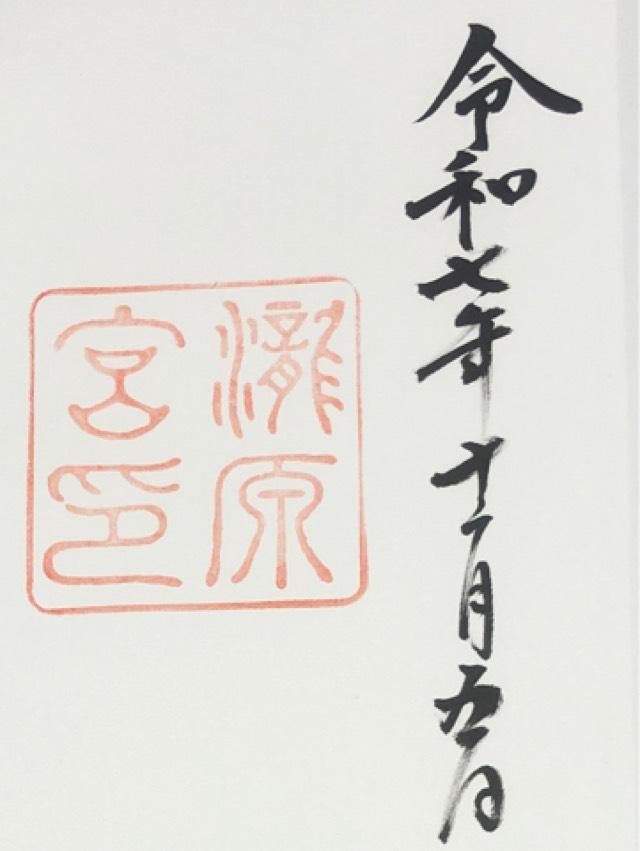 令和七年十一月五日
瀧原
宮印